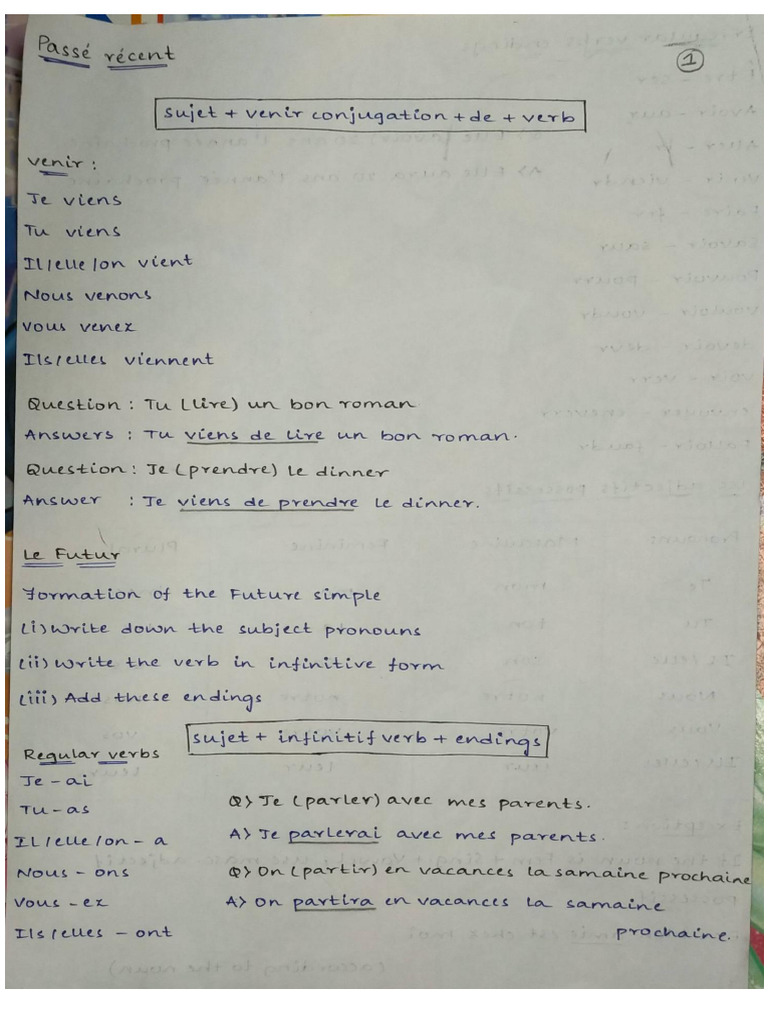 Passé récent
1
sujet + venir conjugation + de + verb
venir :
Je viens
Tu viens
Il/elle/on vient
Nous venons
Vous venez
Ils/elles viennent
Question : Tu (lire) un bon roman
Answers : Tu viens de lire un bon roman.
Question : Je (prendre) le dinner
Answer : Je viens de prendre le dinner.
Le Futur
Formation of the Future simple
(i) Write down the subject pronouns
(ii) Write the verb in infinitive form
(iii) Add these endings
sujet + infinitif verb + endings
Regular verbs
Je - ai
Tu - as
Il/elle/on - a
Nous - ons
Vous - ez
Ils/elles - ont
Q> Je (parler) avec mes parents.
A> Je parlerai avec mes parents.
Q> On (partir) en vacances la samaine prochaine
A> On partira en vacances la samaine
prochaine.